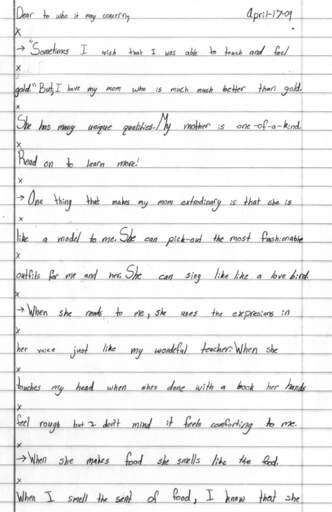 Dear to who it may concern, April-17-09
x
→ "Sometimes I wish that I was able to touch and feel
x
gold." But, I have my mom who is much much better than gold.
x
She has many unique qualities. My mother is one-of-a-kind.
x
Read on to learn more!
x
→ One thing that makes my mom extrodinary is that she is
x
like a model to me. She can pick-out the most fashionable
x
outfits for me and her. She can sing like like a love bird.
x
→ When she reads to me, she uses the expresions in
x
her voice just like my wondeful teacher. When she
x
touches my head when shes done with a book her hands
x
feel rough but I don't mind it feels comforting to me.
x
→ When she makes food she smells like the food.
x
When I smell the sent of food, I know that she